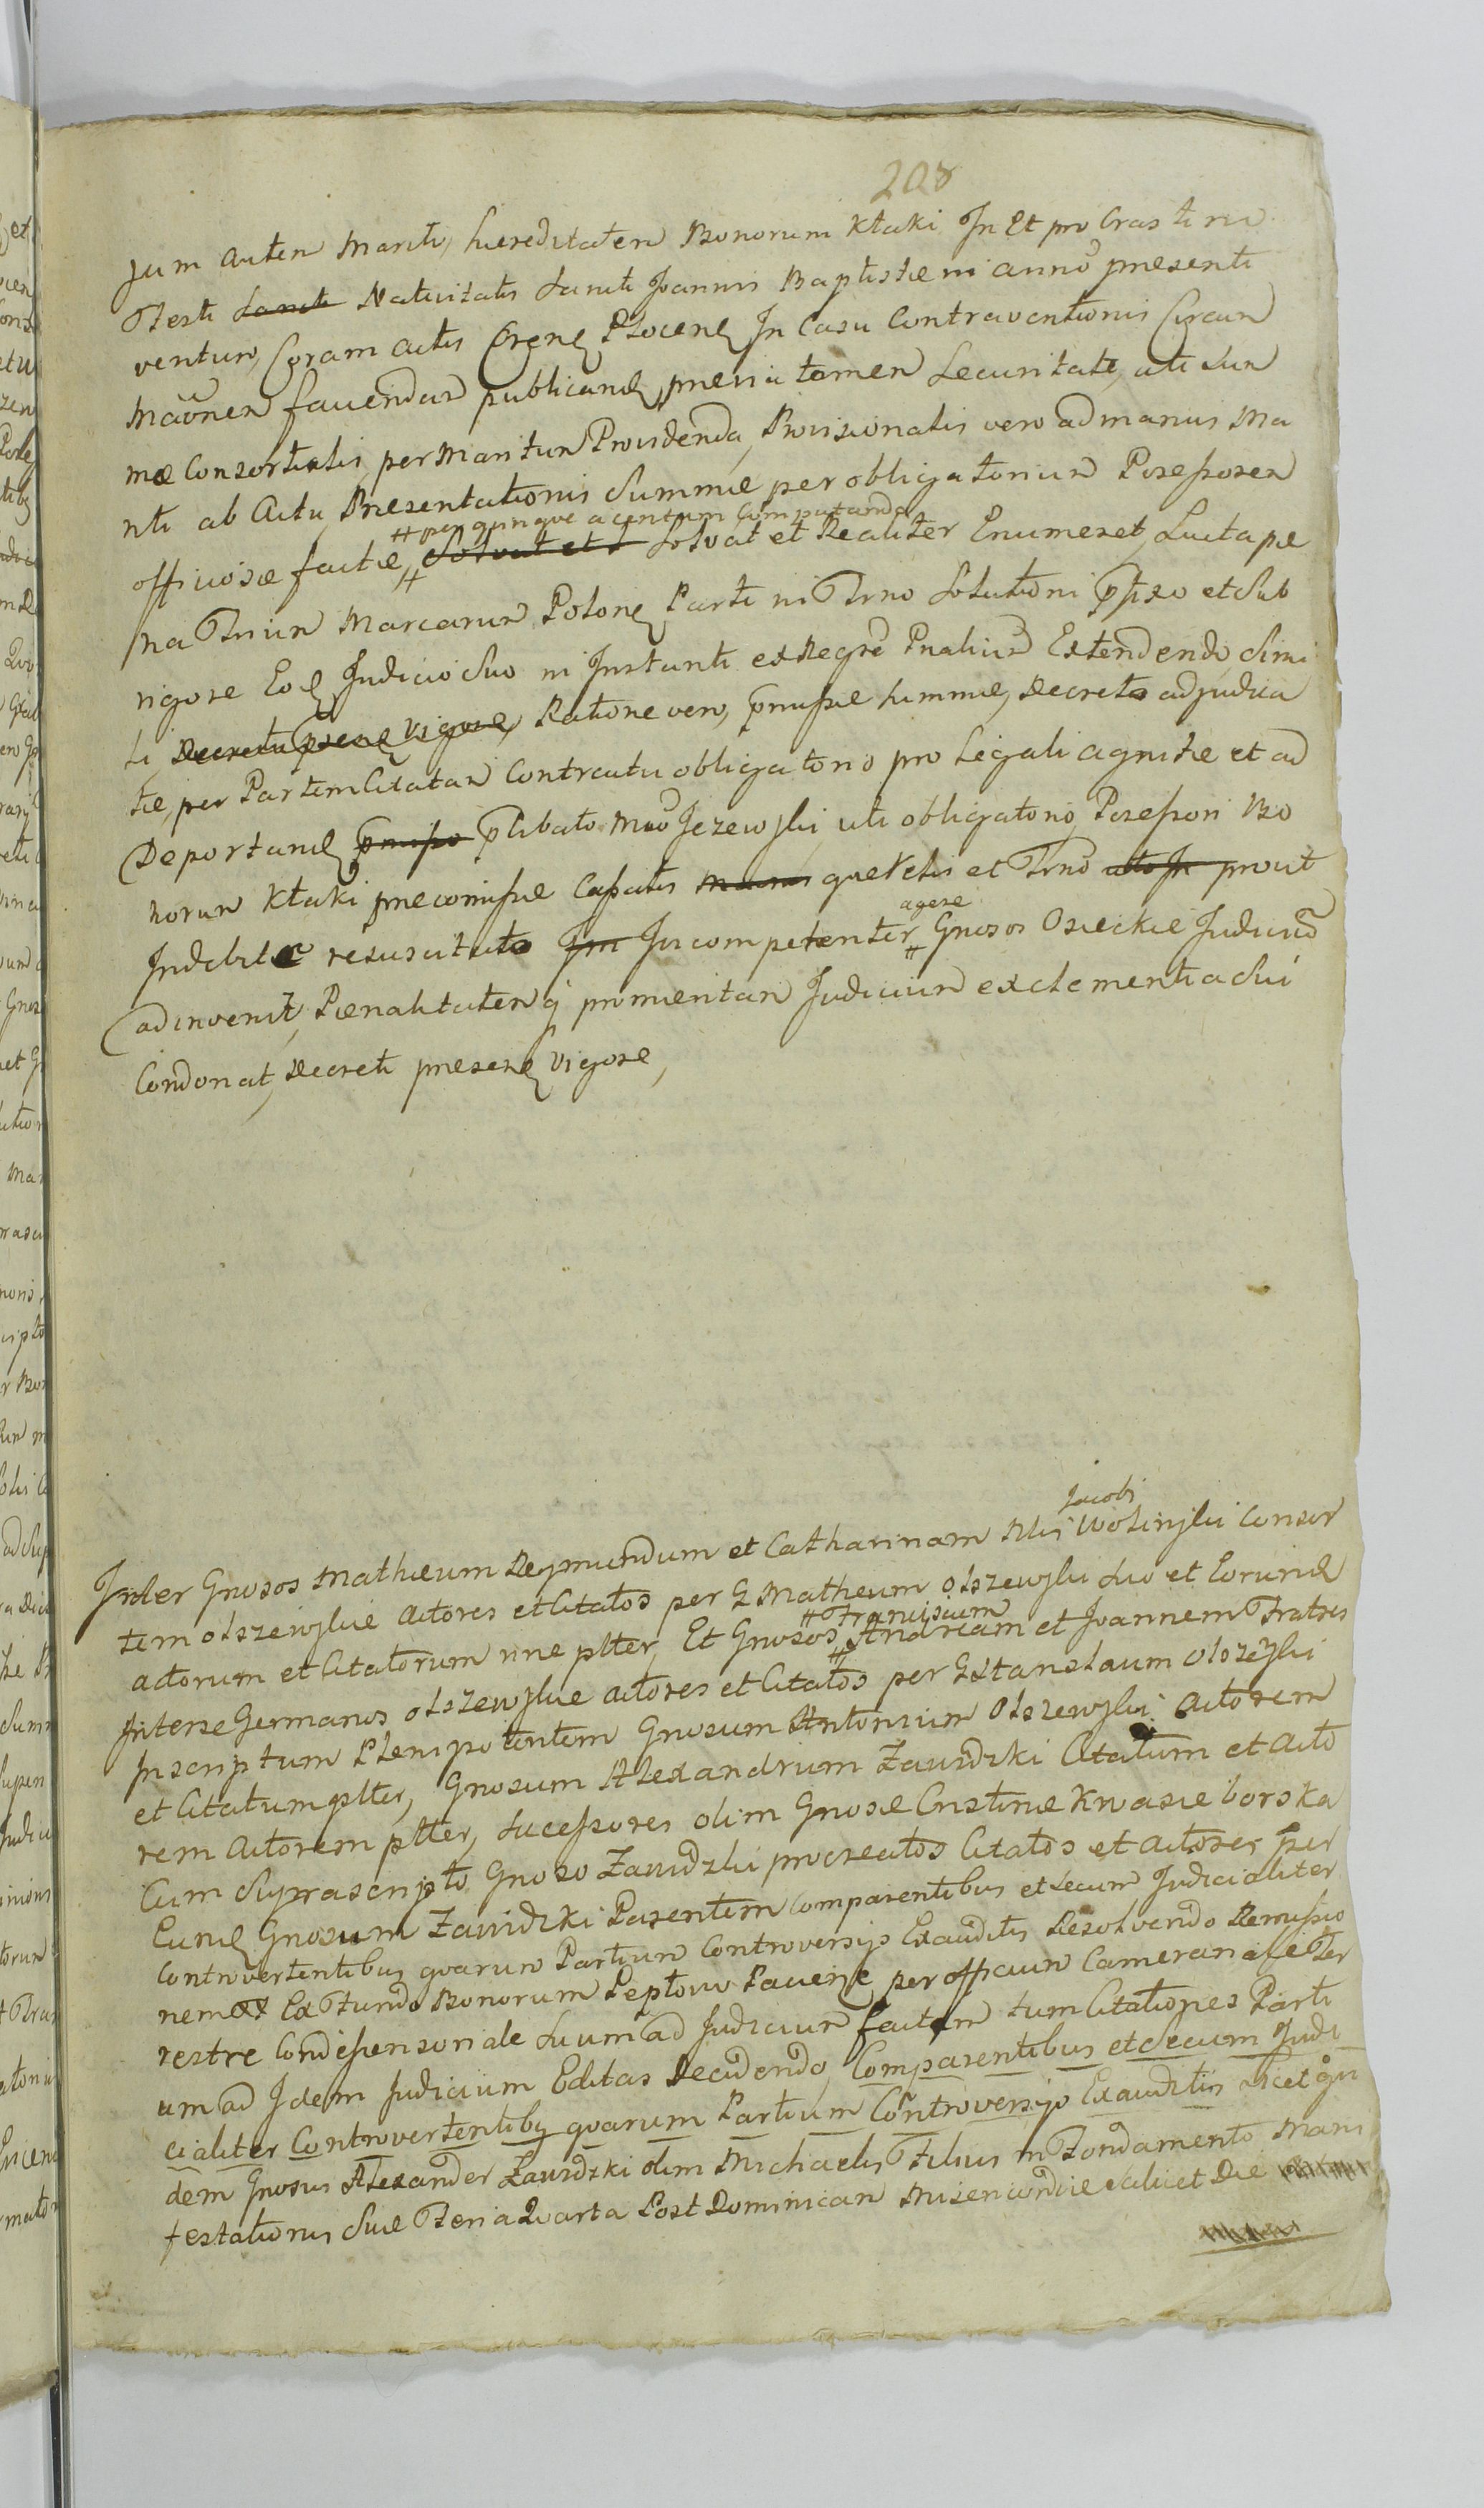 208
sum autem Mariti, hæreditatem Bonorum Kłaki In Et pro Crastino
Festi Sancti Nativitatis Sancti Joannis Baptistæ in anno presenti
venturo, Coram actis Crens Plocens In Casu Contraventionis Circum
maonem favendam publicand, previa tamen Securitate, uti Sum
mæ Consortialis per Maritum Providenda, Provisionalis vero ad manus Ma
nti ab Actu Presentationis Summæ per obligatorium Possessorem
# per quinque a centum Computando
officiose factæ, # Solvat et S Solvat et Realiter Enumeret, Lucta pæ
na Trium Marcarum Polon Parti in Trno Solutioni pfixo et Sub
rigore Eod Judicio Suo in Instanti ex Regro Pnalium Extendendo Simi
li, Decreti presens vigore, Ratione vero, pmissæ Summæ, Decreto adjudica
tæ, per Partem Citatam Contractu obligatorio pro Legali agnitæ et ad
Deportand pmisso plibato Mco Jezewski, uti obligatorio, Possessori Bo
norum Kłaki premissæ Cassatis manus querelis et Trno uti In prout
agere
Indebite resuscitato Jm Incompetenter # Gnosos Osieckie Judicium
adinvenit, Pænalitatem q promeritam Judicium ex clementia Sui
Condonat, Decreti presens vigore,
Jacobi
Inter Gnosos Mathæum Reymundum et Catharinam Mci Wolinski Consor
tem Olszewskie Actores et Citatos per G Matheum Olszewski Suo et Eorund
# Franciscum
actorum et Citatorum nne pltter, Et Gnosos # Andream et Joannem Fratres
Interse Germanos Olszewskie Actores et Citatos per G Stanislaum Olszeski
Inscriptum Plenipotentem Gnosum Antonium Olszewski Actorem
et Citatum pltter, Gnosum Alexandrum Zawidzki Citatum et Acto
rem Actorem pltter, Sucessores olim Gnosæ Cristinæ Kwasieborska
Cum Suprascripto Gnoso Zawidzki procreatos Citatos et Actores per
Eund Gnosum Zawidzki Parentem Comparentibus et Secum Judicialiter
Controvertentibus quarum Partium Controversys Exauditis Resolvendo Remissio
nem Ex Fundo Bonorum Peptowo Pavens per officium Camerarale Ter
restre Condessensoriale Suum ad Judicium factam tum Citationes Parti
um ad Idem Judicium Editas Decidendo, Comparentibus et Secum Judi
cialiter Controvertentibq quarum Partium Controversys Exauditis Licet qui
dem Gnosus Alexander Zawidzki olim Michaelis Filius in Fondamento Mani
festationis Suæ Feria Quarta Post Dominicam Misericordiæ scilicet Die